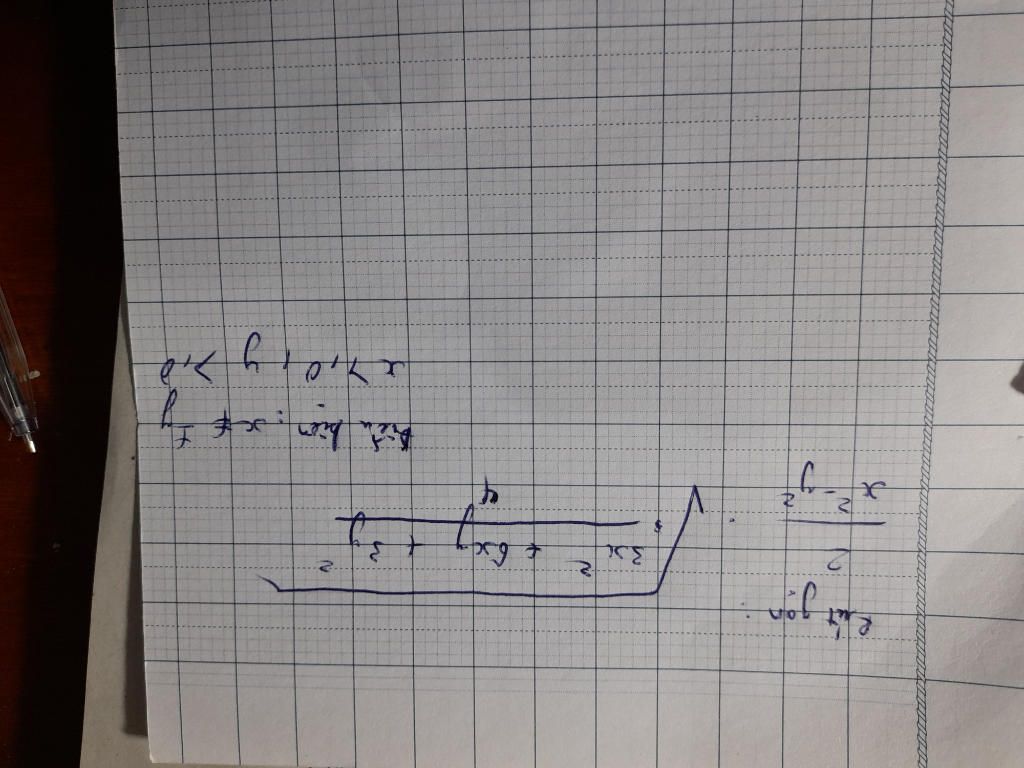 Rút gọn:
2/(x² - y²) · √((3x² + 6xy + 3y²)/4)
Điều kiện: x ≠ ± y
x ≥ 0, y ≥ 0